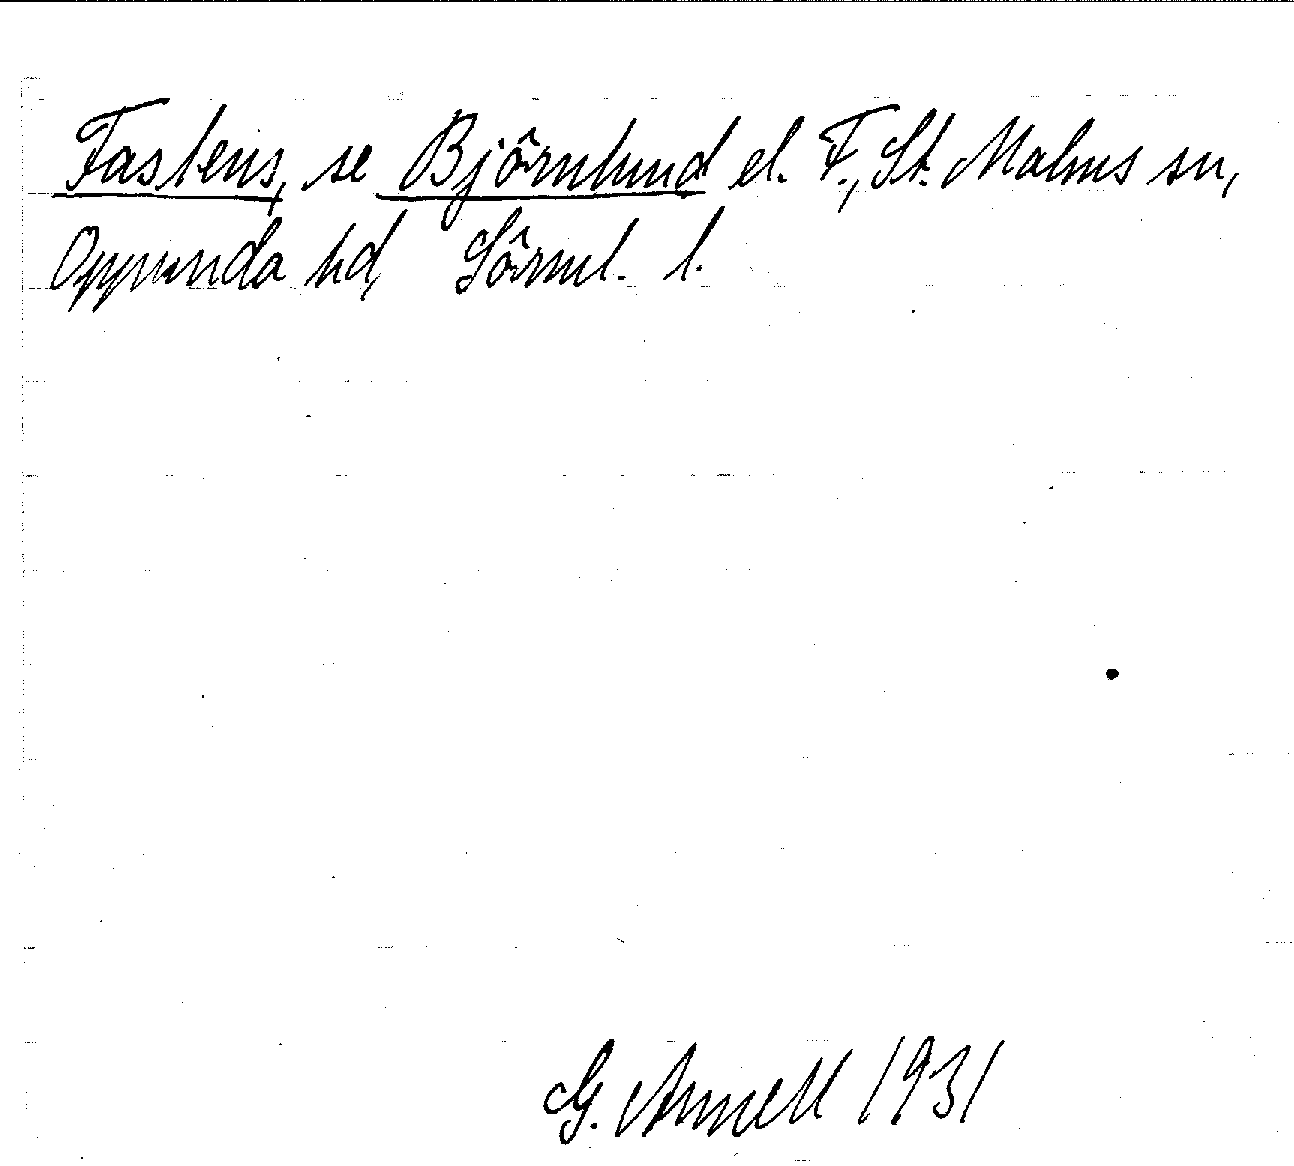 Fastens, se Björnlund el. F., St. Malms sn,
Oppunda hd, Sörml. l.
G. Arnell 1931